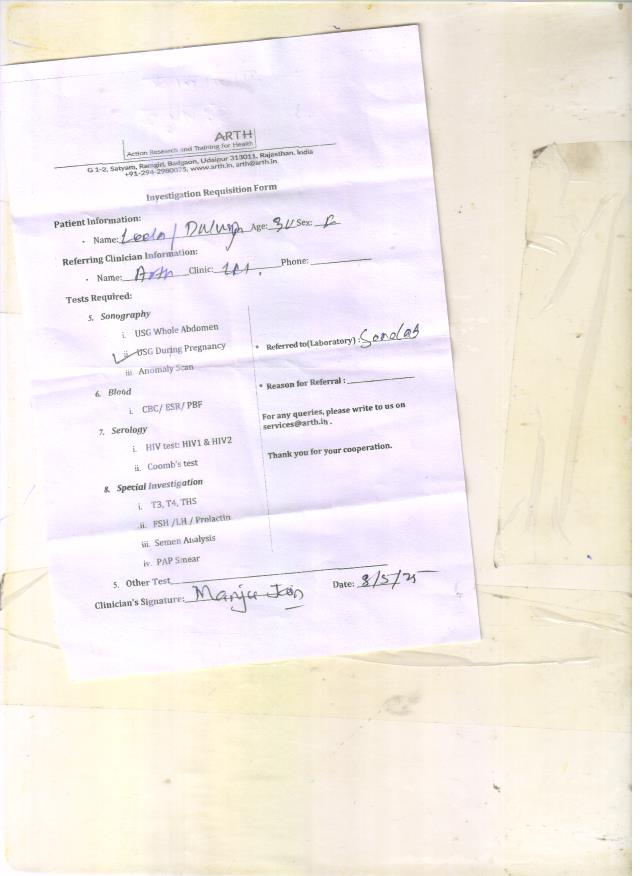 ARTH
Action Research and Training for Health
G 1-2, Satyam, Ramgiri, Badgaon, Udaipur 313011, Rajasthan, India
+91-294-2980075, www.arth.in, arth@arth.in
Investigation Requisition Form
Patient Information:
- Name: Leela / Age: Sex:
Referring Clinician Information:
- Name: Arth Clinic: Phone:
Tests Required:
5. Sonography
i. USG Whole Abdomen
ii. USG During Pregnancy
iii. Anomaly Scan
6. Blood
i. CBC/ ESR/ PBF
7. Serology
i. HIV test: HIV1 & HIV2
ii. Coomb's test
8. Special Investigation
i. T3, T4, THS
ii. FSH /LH / Prolactin
iii. Semen Analysis
iv. PAP Smear
* Referred to(Laboratory) :
* Reason for Referral :
For any queries, please write to us on
services@arth.in .
Thank you for your cooperation.
5. Other Test
Clinician's Signature: Manju Jain Date: 8/5/25